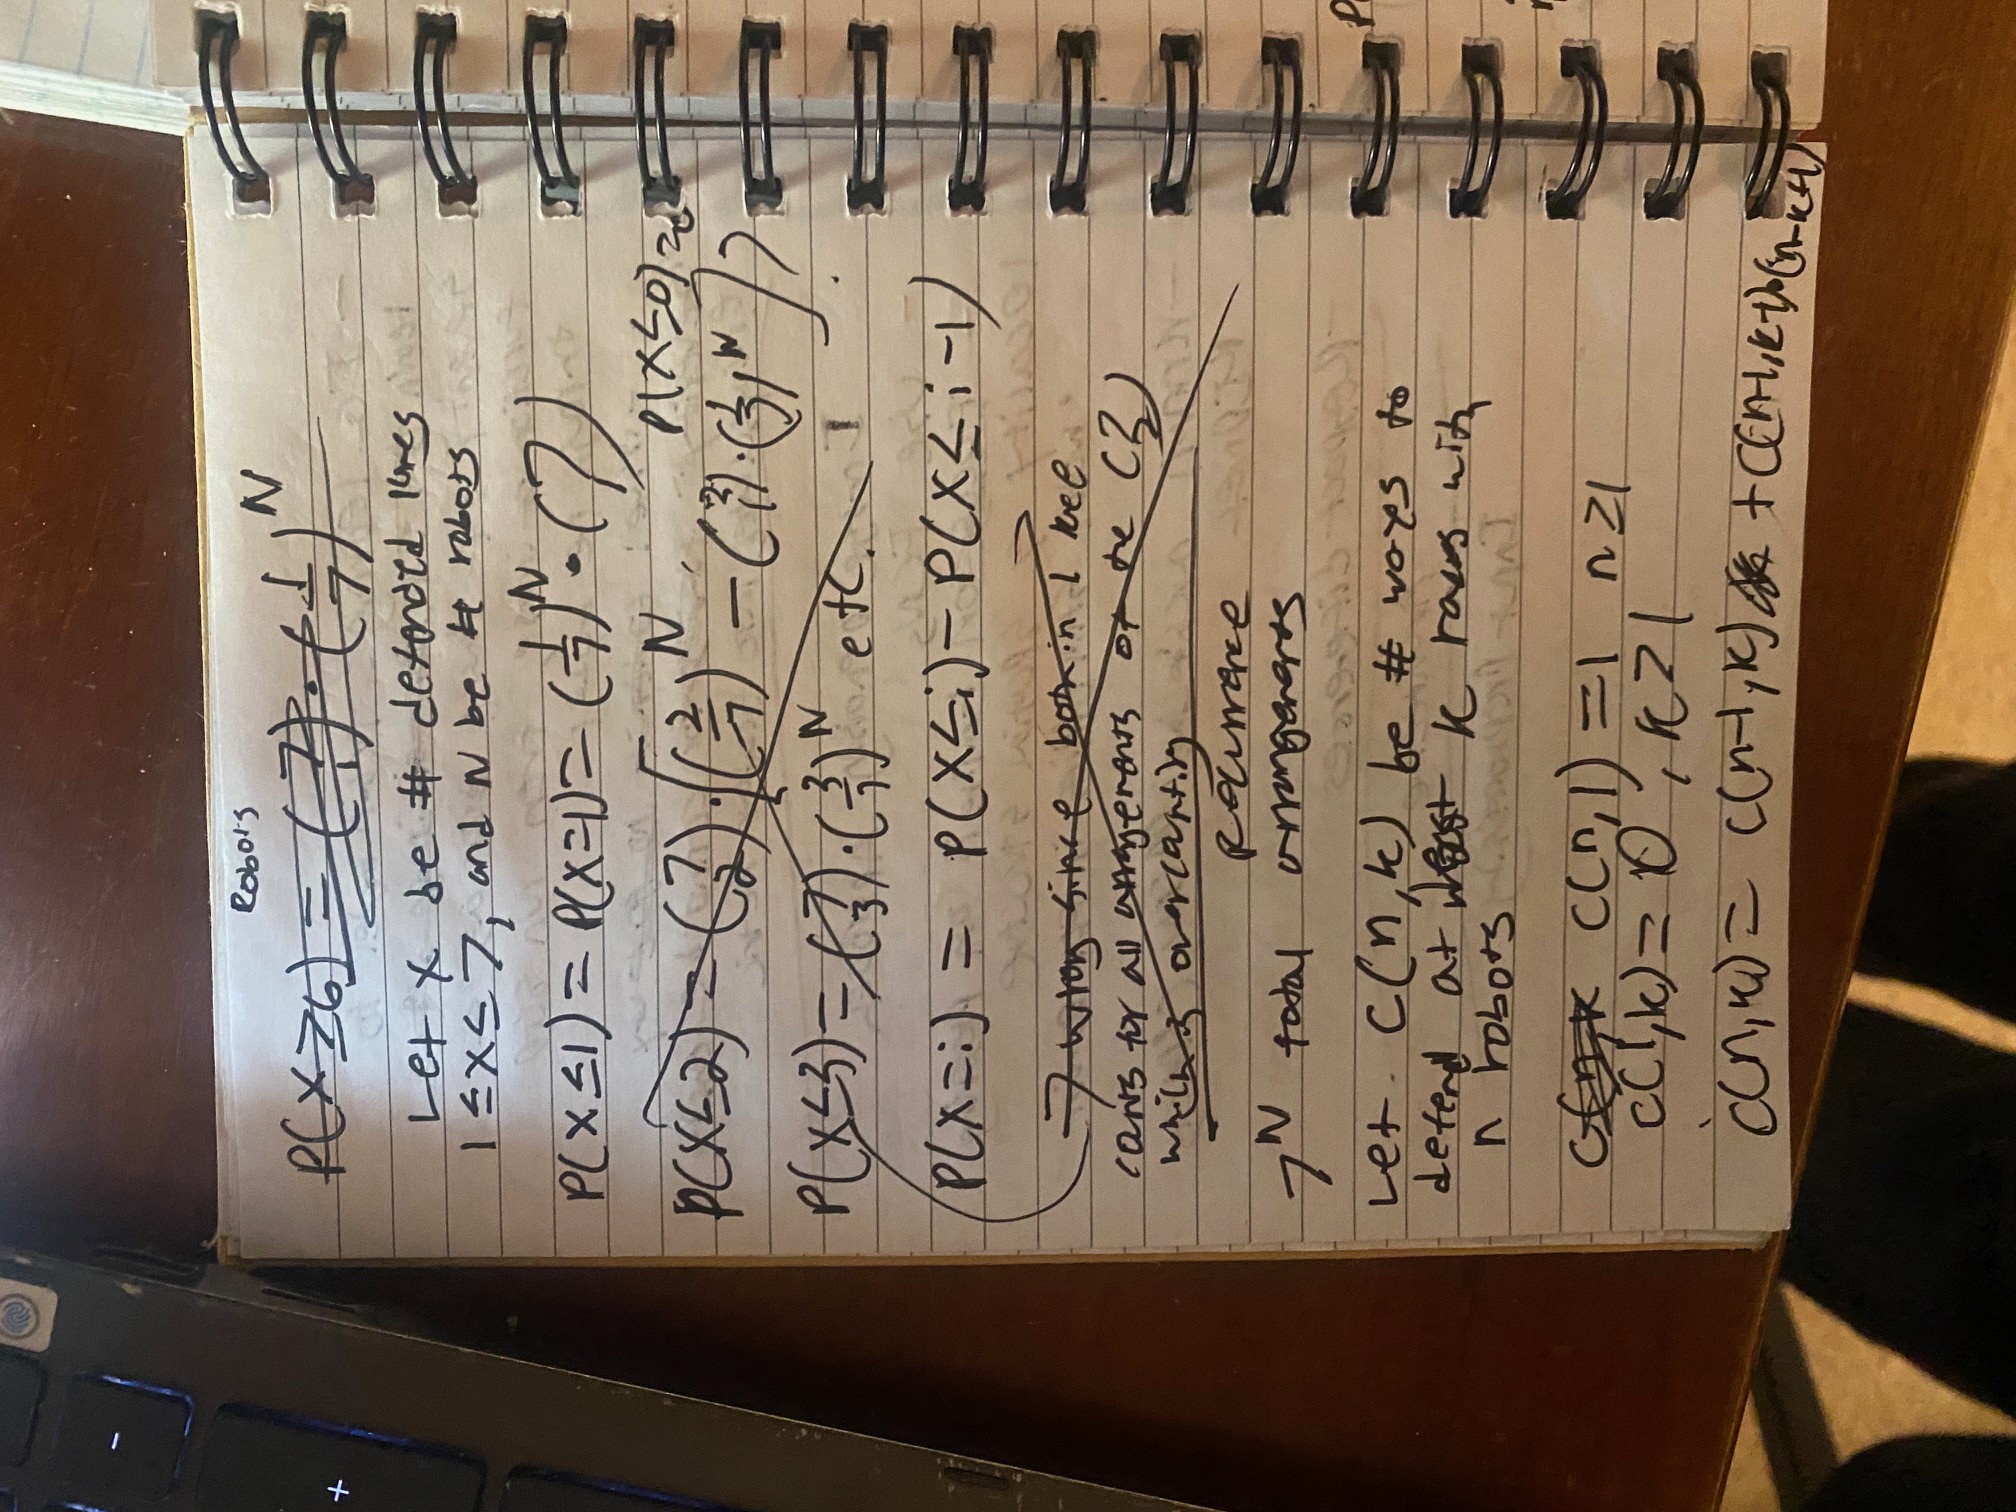 Robots
P(X≥6) = (7 1) · (1/7)^N
Let X be # defended lanes
1 ≤ X ≤ 7, and N be # robots
P(X≤1) = P(X=1) = (1/7)^N · (7)
P(X≤0)=0
P(X≤2) = (7 2) · [(2/7)^N - (2 1) · (1/7)^N] ?
P(X≤3) = (7 3) · (3/7)^N etc.
P(X=i) = P(X≤i) - P(X≤i-1)
→ wrong since both in 1
counts for all arrangements of the (7 2)
which is overcounting
Recurrence
7^N total arrangements
Let C(n,k) be # ways to
defend at least k rows with
n robots
C(n,k C(n,1) = 1 n≥1
C(1,k) = 0, k>1
C(n,k) = C(n-1,k) + C(n-1,k-1)·(n-k+1)
-
+
P